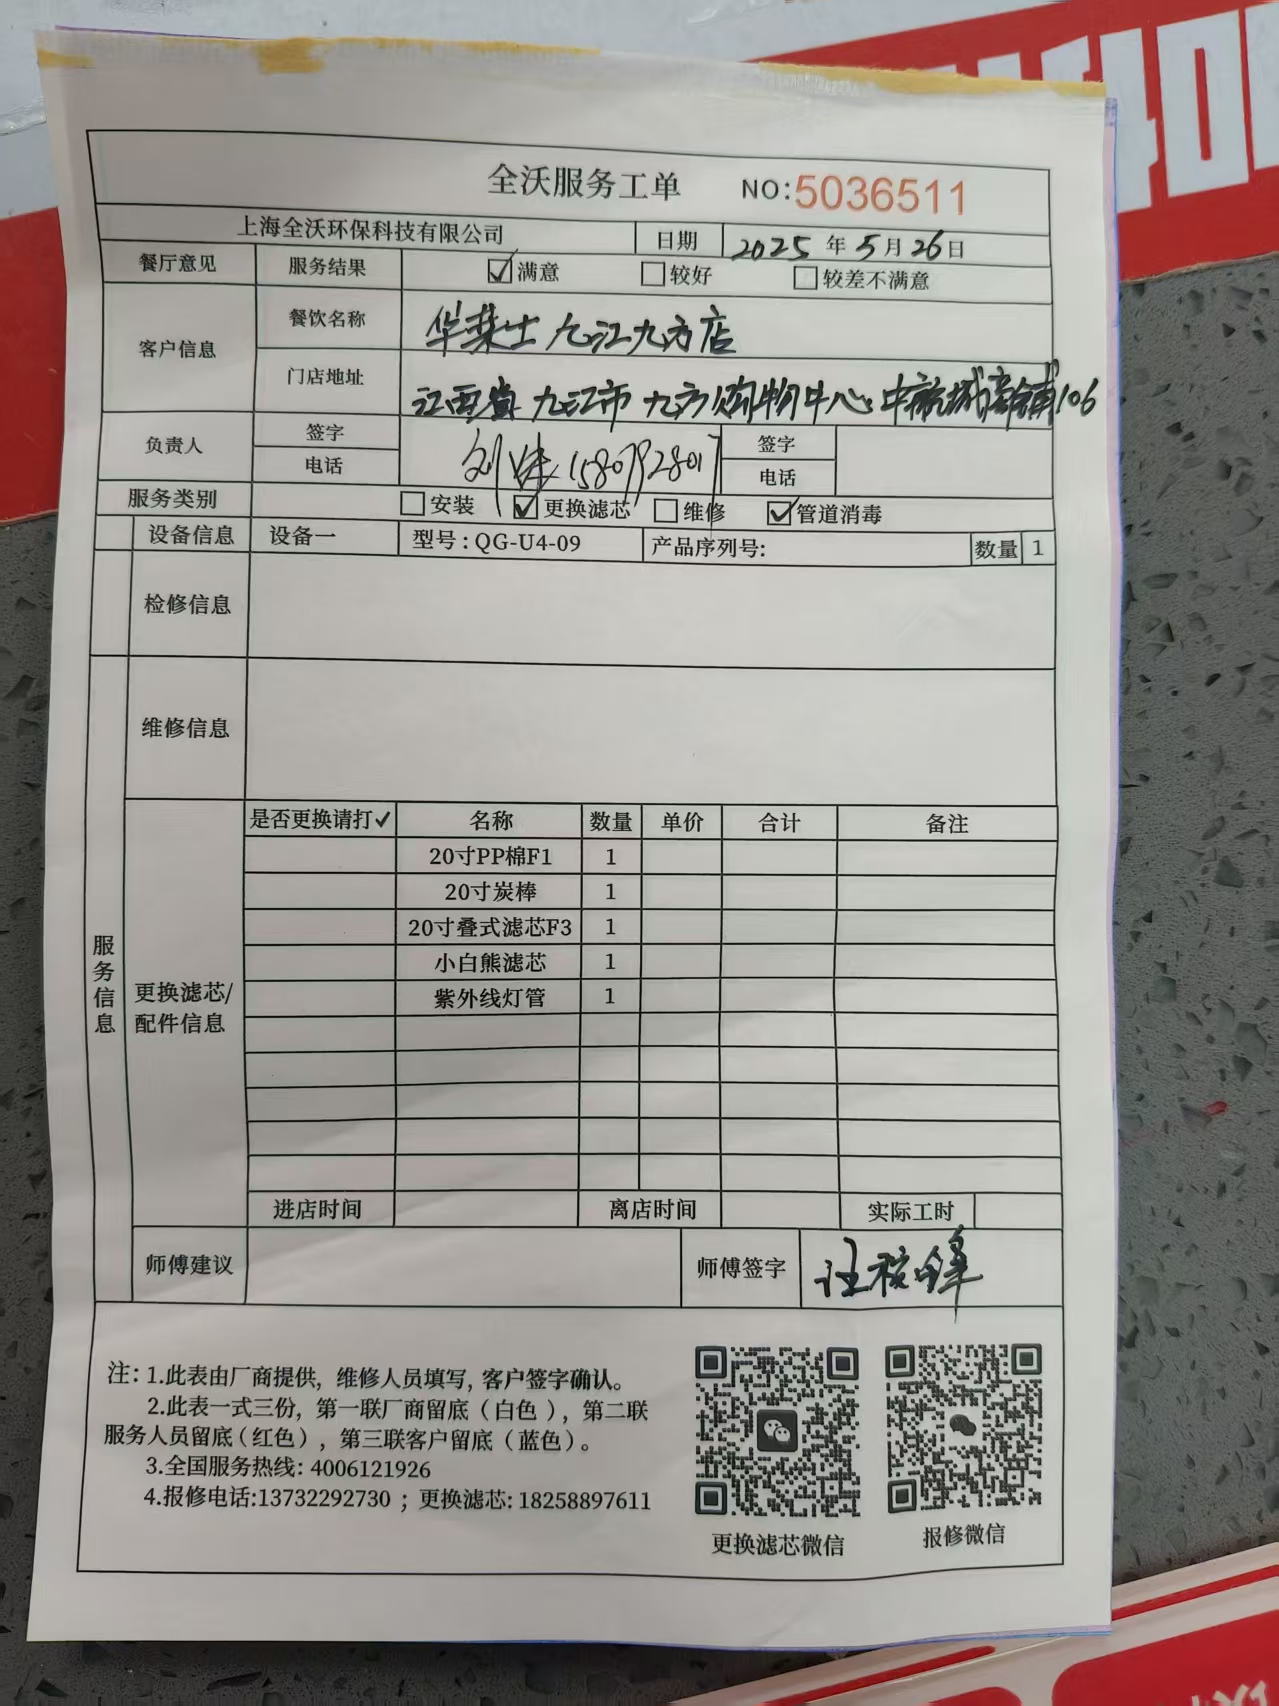 全沃服务工单 NO:5036511
上海全沃环保科技有限公司 日期 2025 年 5 月 26 日
餐厅意见 服务结果 ☑满意 ☐较好 ☐较差不满意
客户信息 餐饮名称 华莱士 九江九方店
门店地址 江西省 九江市 九方购物中心 中航城商铺106
负责人 签字 刘 签字
电话 15807928017 电话
服务类别 ☐安装 ☑更换滤芯 ☐维修 ☑管道消毒
设备信息 设备一 型号:QG-U4-09 产品序列号: 数量 1
检修信息
维修信息
服务信息
更换滤芯/
配件信息
是否更换请打✓ 名称 数量 单价 合计 备注
20寸PP棉F1 1
20寸炭棒 1
20寸叠式滤芯F3 1
小白熊滤芯 1
紫外线灯管 1
进店时间 离店时间 实际工时
师傅建议 师傅签字 汪 锋
注: 1.此表由厂商提供, 维修人员填写, 客户签字确认。
2.此表一式三份, 第一联厂商留底(白色), 第二联
服务人员留底(红色), 第三联客户留底(蓝色)。
3.全国服务热线: 4006121926
4.报修电话:13732292730 ; 更换滤芯: 18258897611
更换滤芯微信 报修微信